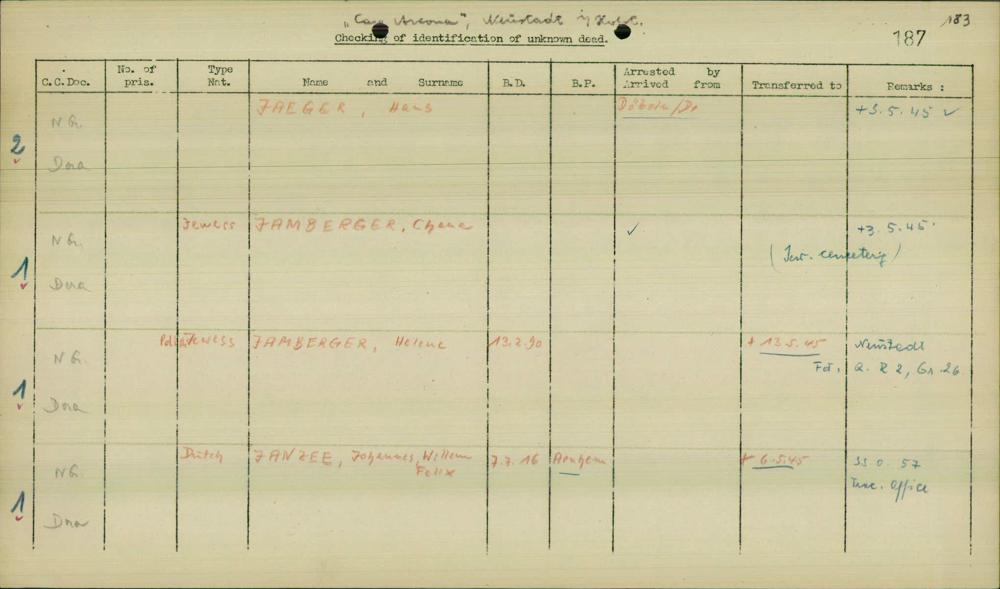 "Cap Arcona", Neustadt i/ Holst.
183
Checking of identification of unknown dead.
187
C.C.Doc.
No. of pris.
Type Nat.
Name and Surname
B.D.
B.P.
Arrested by
Arrived from
Transferred to
Remarks :
2
N G.
Dora
JAEGER, Hans
+3.5.45 ✓
1
N G.
Dora
Jewess
JAMBERGER, Chana
✓
+3.5.45
(Jew. cemetery)
1
N G.
Dora
Jewess
JAMBERGER, Helene
13.2.90
+ 13.5.45
Neustadt
Fd., Q. R 2, Gr. 26
1
N G.
Dora
Dutch
JANZEE, Johannes, Willem
Felix
7.7.16
Arnhem
+ 6.5.45
Trac. Office